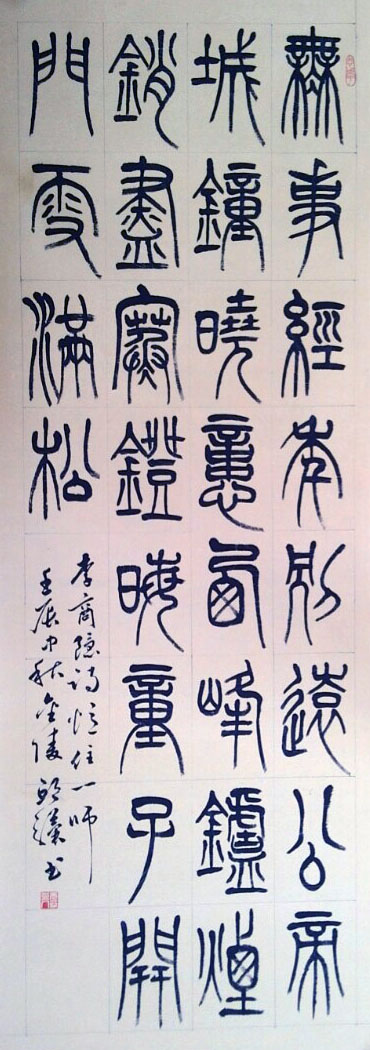 無事經年別遠公帝
城鐘曉憶西峰鑪煙
銷盡寒鐙晦童子開
門雪滿松
李商隱詩憶住一師
壬辰中秋金陵 書